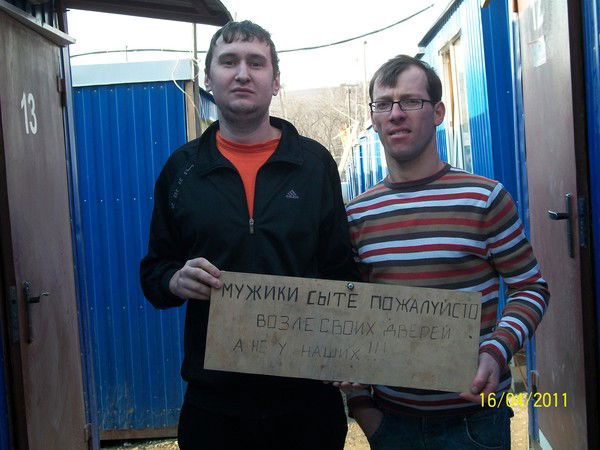 13
12
adidas
МУЖИКИ СЫТЕ ПОЖАЛУЙСТО
ВОЗЛЕ СВОИХ ДВЕРЕЙ
А НЕ У НАШИХ !!!
16/04/2011